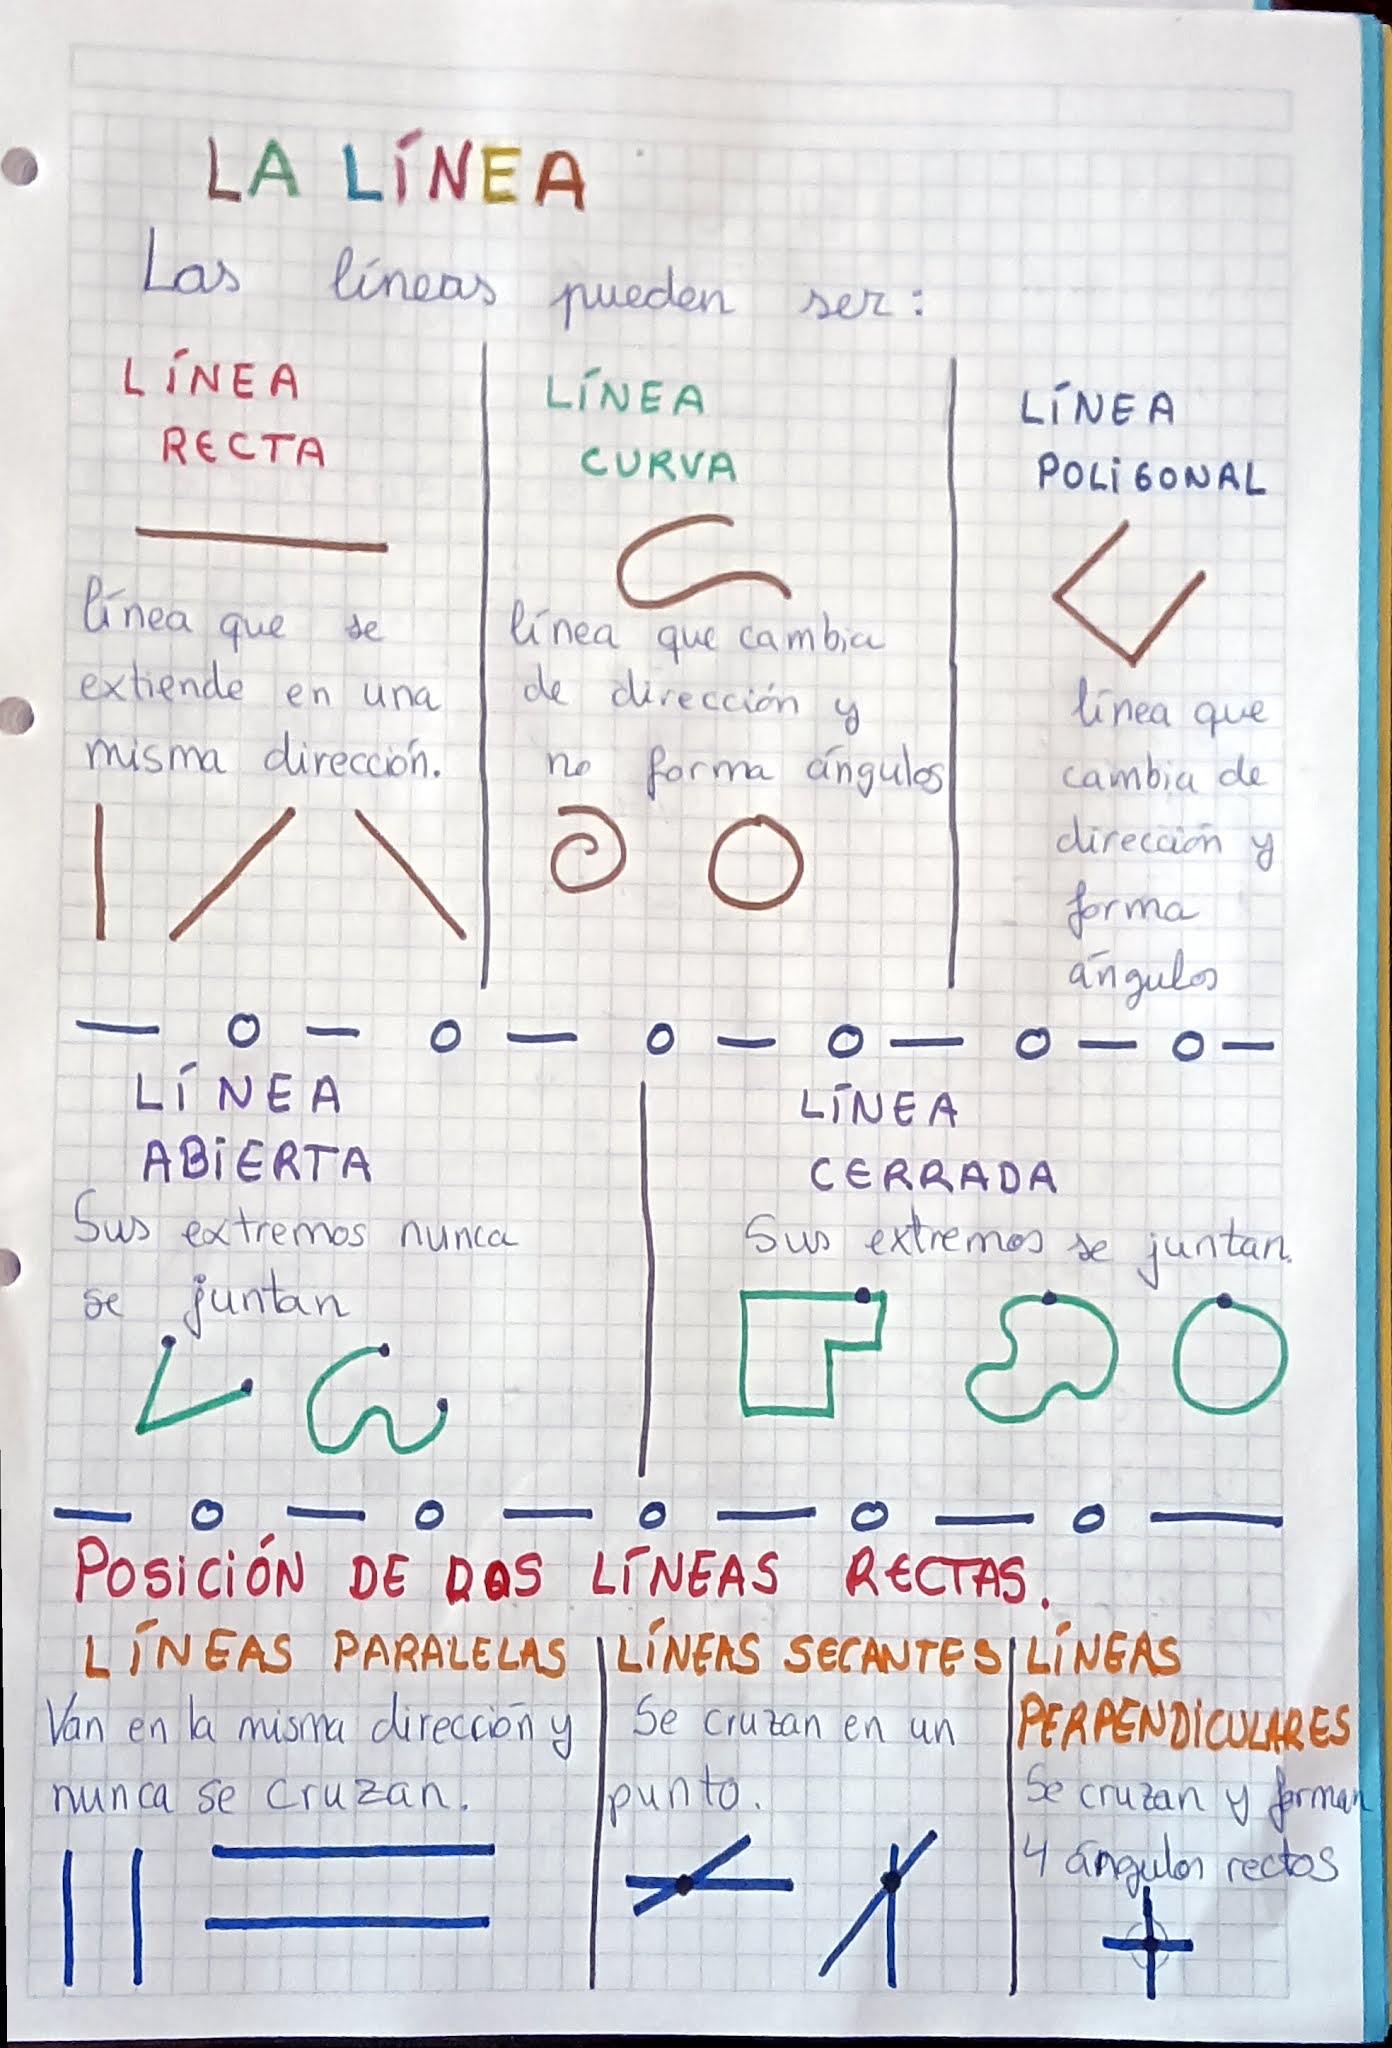 LA LÍNEA
Las líneas pueden ser:
LÍNEA
RECTA
línea que se
extiende en una
misma dirección.
LÍNEA
CURVA
línea que cambia
de dirección y
no forma ángulos
LÍNEA
POLIGONAL
línea que
cambia de
dirección y
forma
ángulos
LÍNEA
ABIERTA
Sus extremos nunca
se juntan
LÍNEA
CERRADA
Sus extremos se juntan.
POSICIÓN DE DOS LÍNEAS RECTAS.
LÍNEAS PARALELAS
Van en la misma dirección y
nunca se cruzan.
LÍNEAS SECANTES
Se cruzan en un
punto.
LÍNEAS
PERPENDICULARES
Se cruzan y forman
4 ángulos rectos